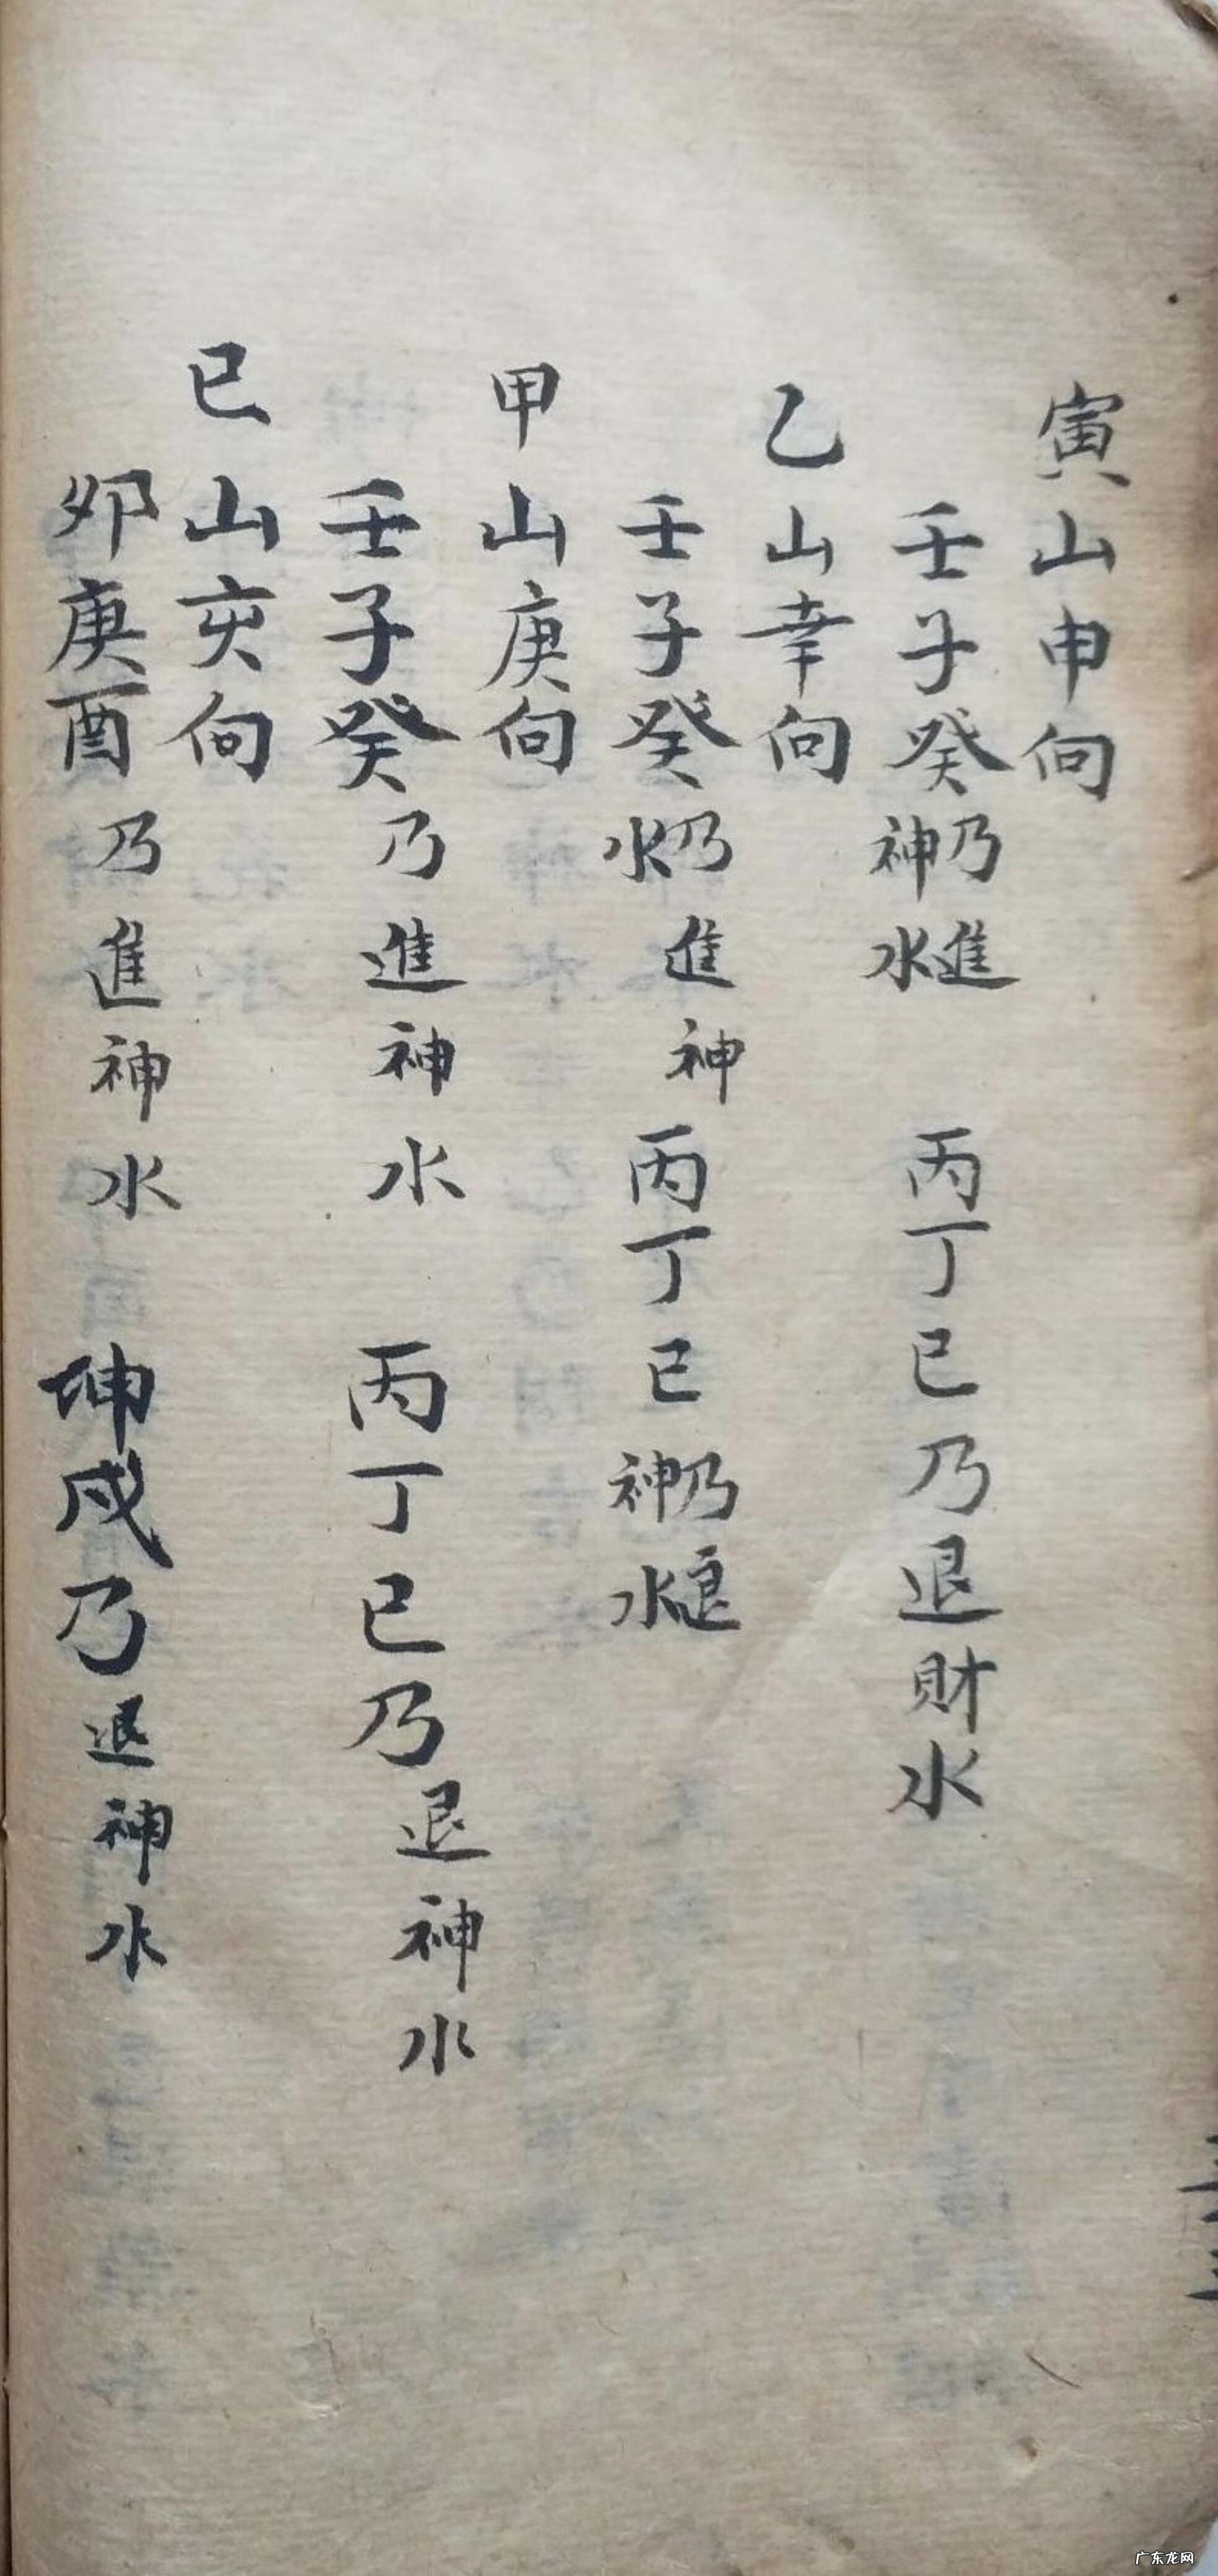 寅山申向
壬子癸乃進神水 丙丁巳乃退財水
乙山幸向
壬子癸乃進神水 丙丁巳乃退神水
甲山庚向
壬子癸乃進神水 丙丁巳乃退神水
巳山亥向
夘庚酉乃進神水 坤戍乃退神水
广东龙网